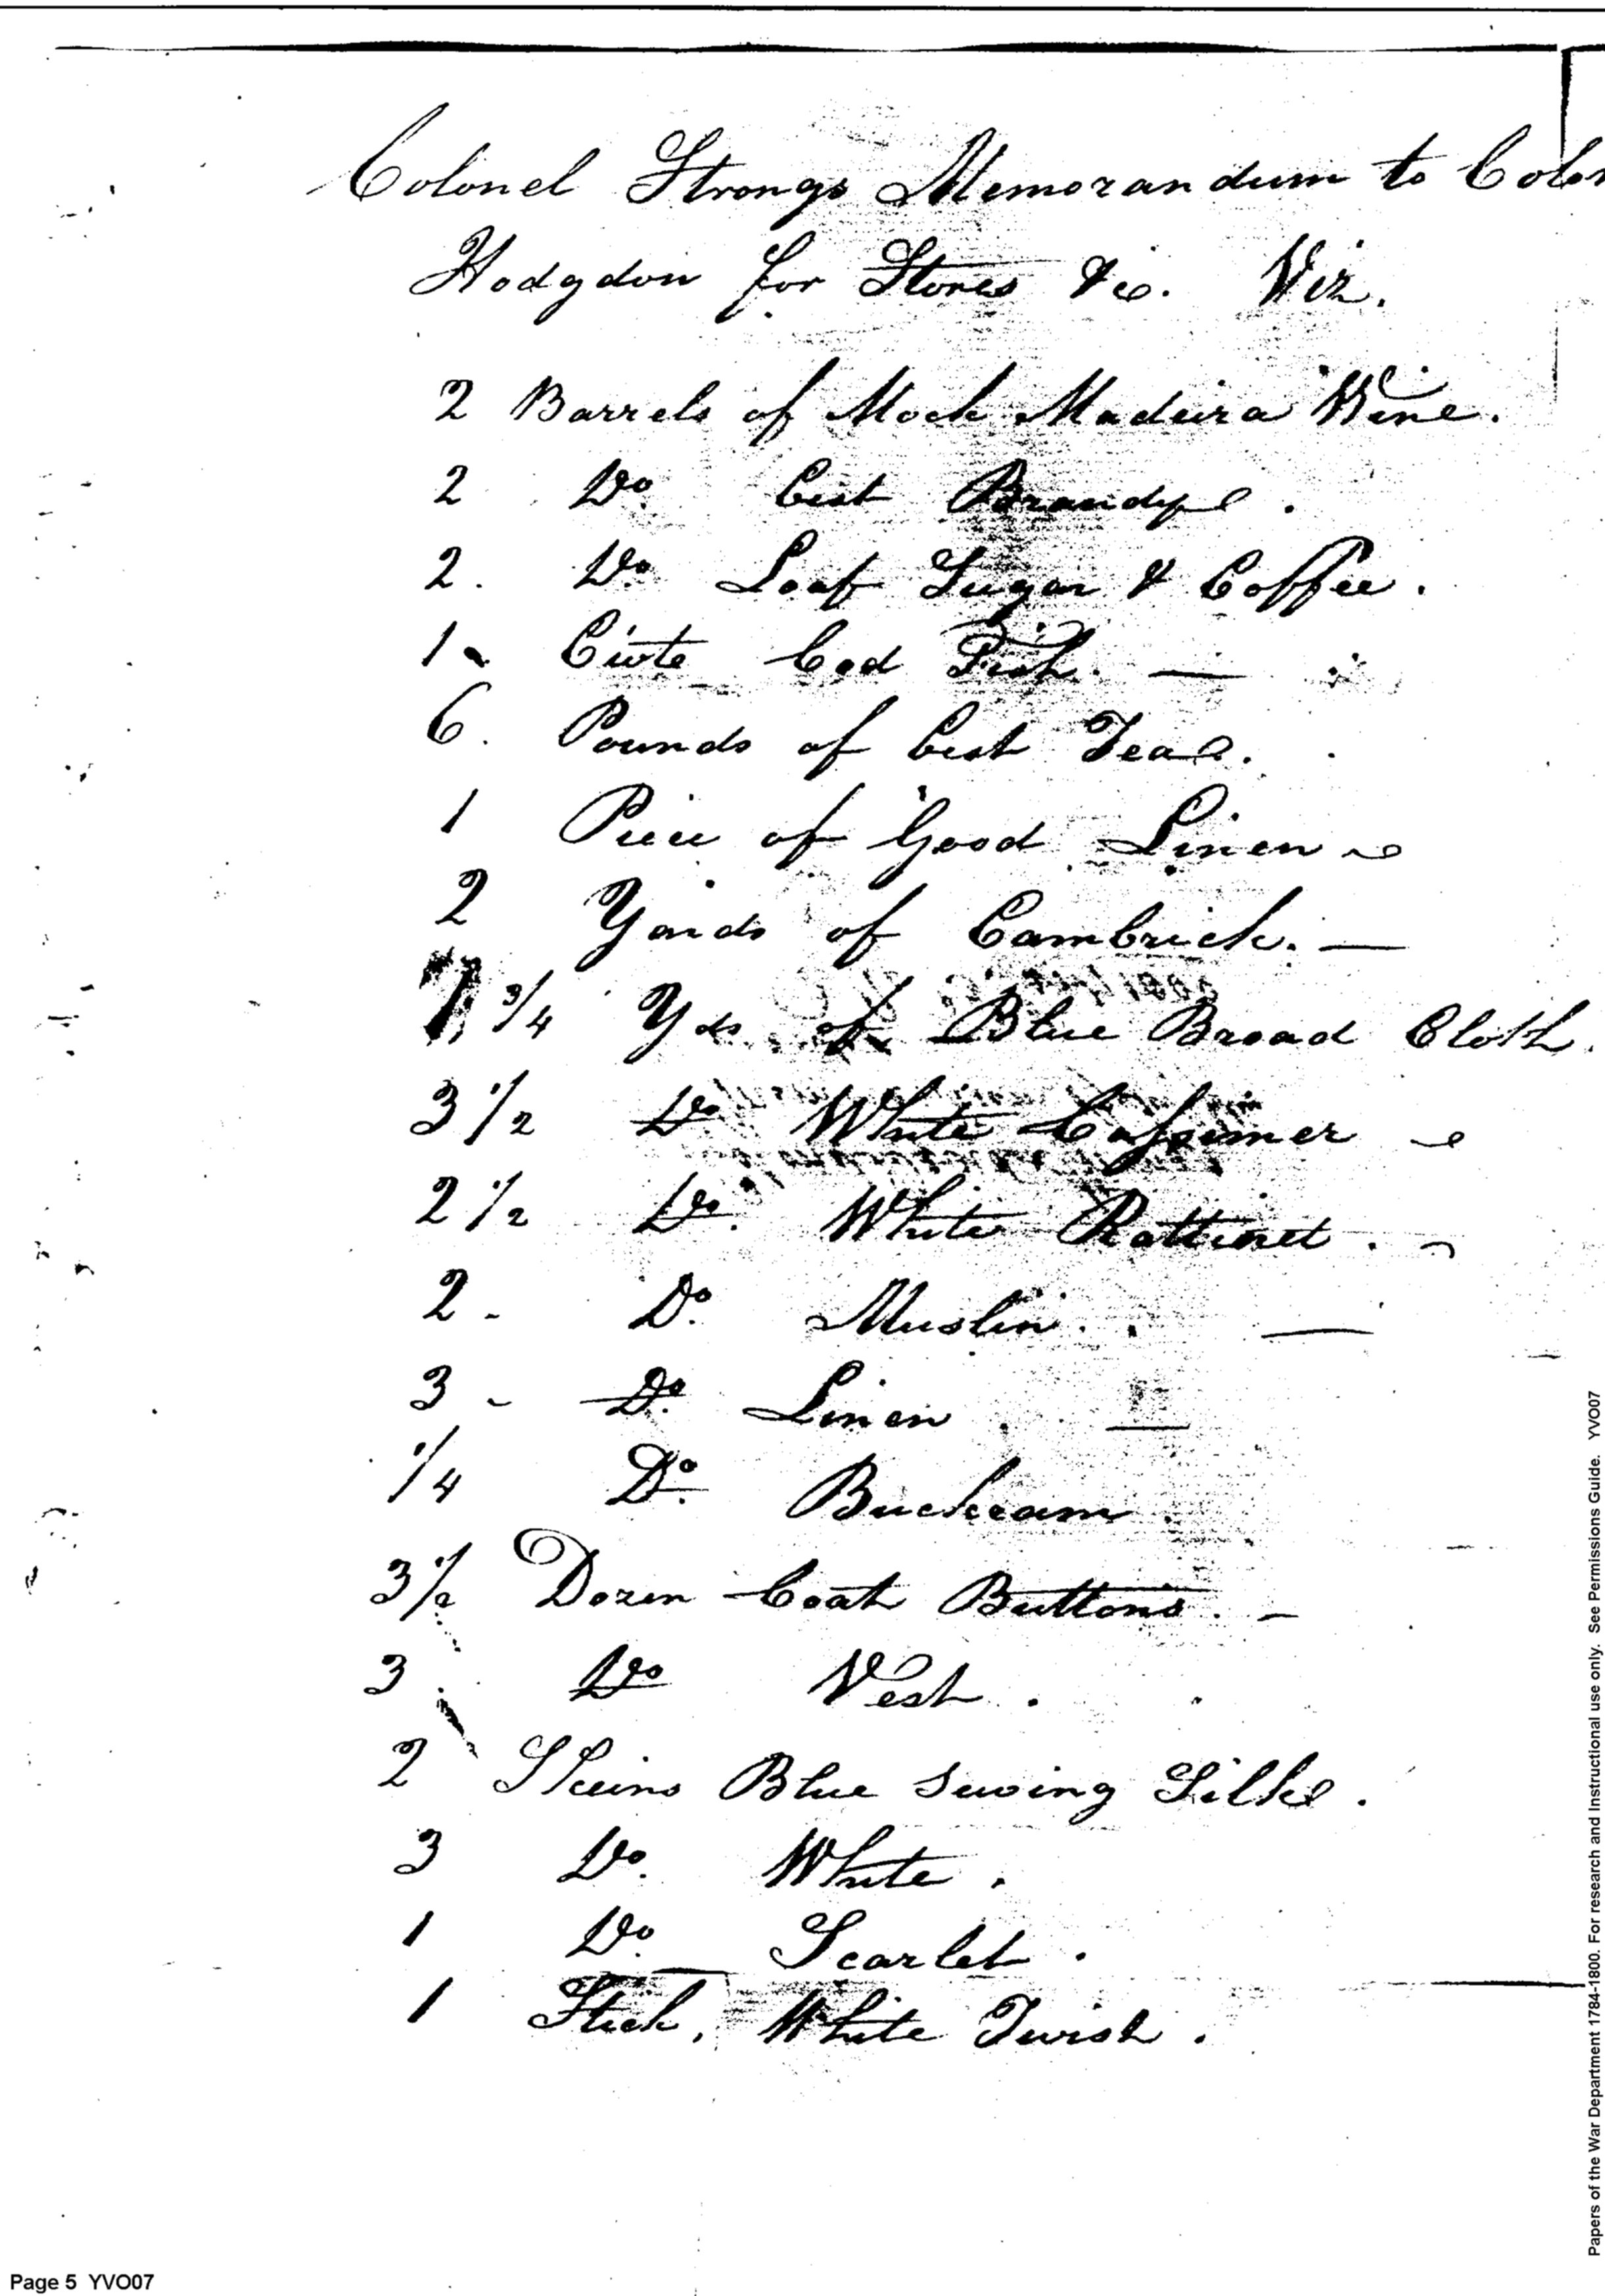 Colonel Strongs Memorandum to Colon
Hodgdon for Stores &c. Viz.
2 Barrels of Mock Madeira Wine.
2 Do. best Brandy.
2. Do. Loaf Sugar & Coffee.
1 Cwte Cod Fish. —
6. Pounds of best Tea.
1 Piece of Good Linen
2 Yards of Cambrick. —
1 3/4 Yds of Blue Broad Cloth.
3 1/2 Do White Cassimer
2 1/2 Do. White Rattinet.
2 - Do. Muslin. —
3 - Do. Linen. —
1/4 Do. Buckram.
3 1/2 Dozen Coat Buttons. -
3 Do Vest.
2 Skeins Blue Sewing Silk.
3 Do. White.
1 Do. Scarlet.
1 Stick, White Twist.
Page 5 YVO07
Papers of the War Department 1784-1800. For research and Instructional use only. See Permissions Guide. YVO07